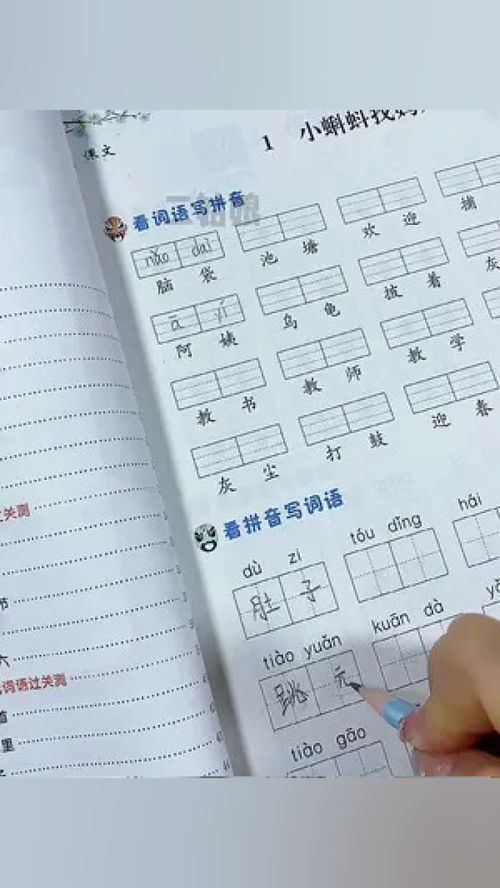 课文
1 小蝌蚪找妈
看词语写拼音
nǎo dai
脑 袋 池 塘 欢 迎 捕
ā yí
阿 姨 乌 龟 披 着 灰
教 书 教 师 教 学
灰 尘 打 鼓 迎 春
看拼音写词语
dù zi tóu dǐng hái
肚 子
tiào yuǎn kuān dà
跳 远
tiào gāo
关测
节
六
词语过关测
首
里